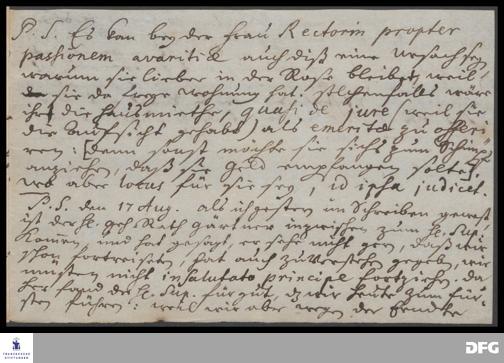 P. S. Es kan bey der Frau Rectorin propter
passionem avaritiæ auch diß eine Ursach sey,
warum sie lieber in der Rosa bleibet, weil
sie da freye wohnung hat. solchenfalls wäre
ihr die Hausmiethe, quasi de jure (weil sie
die Aufsicht gehabt) als emeritæ zu offeri-
ren: (denn sonst möchte sie sichs zum Schimpf
anziehen, daß sie geld empfangen solte.)
wo aber locus für sie sey, id ipsa judicet.
P. S. den 17 Aug. als ich gestern im Schreiben gewest
ist der H. geh. Rath Gärtner inzwischen zum H. Sup.
kommen, und hat gesagt, er sehe nicht gern, daß wir
schon fortreiseten, hat auch zuverstehen gegeben, wir
müsten nicht insalutato principe fortziehen, da
her fand der H. Sup. für gut, dz wir heute zum Für-
sten führen: weil wir aber wegen der
FRANCKESCHE STIFTUNGEN
DFG